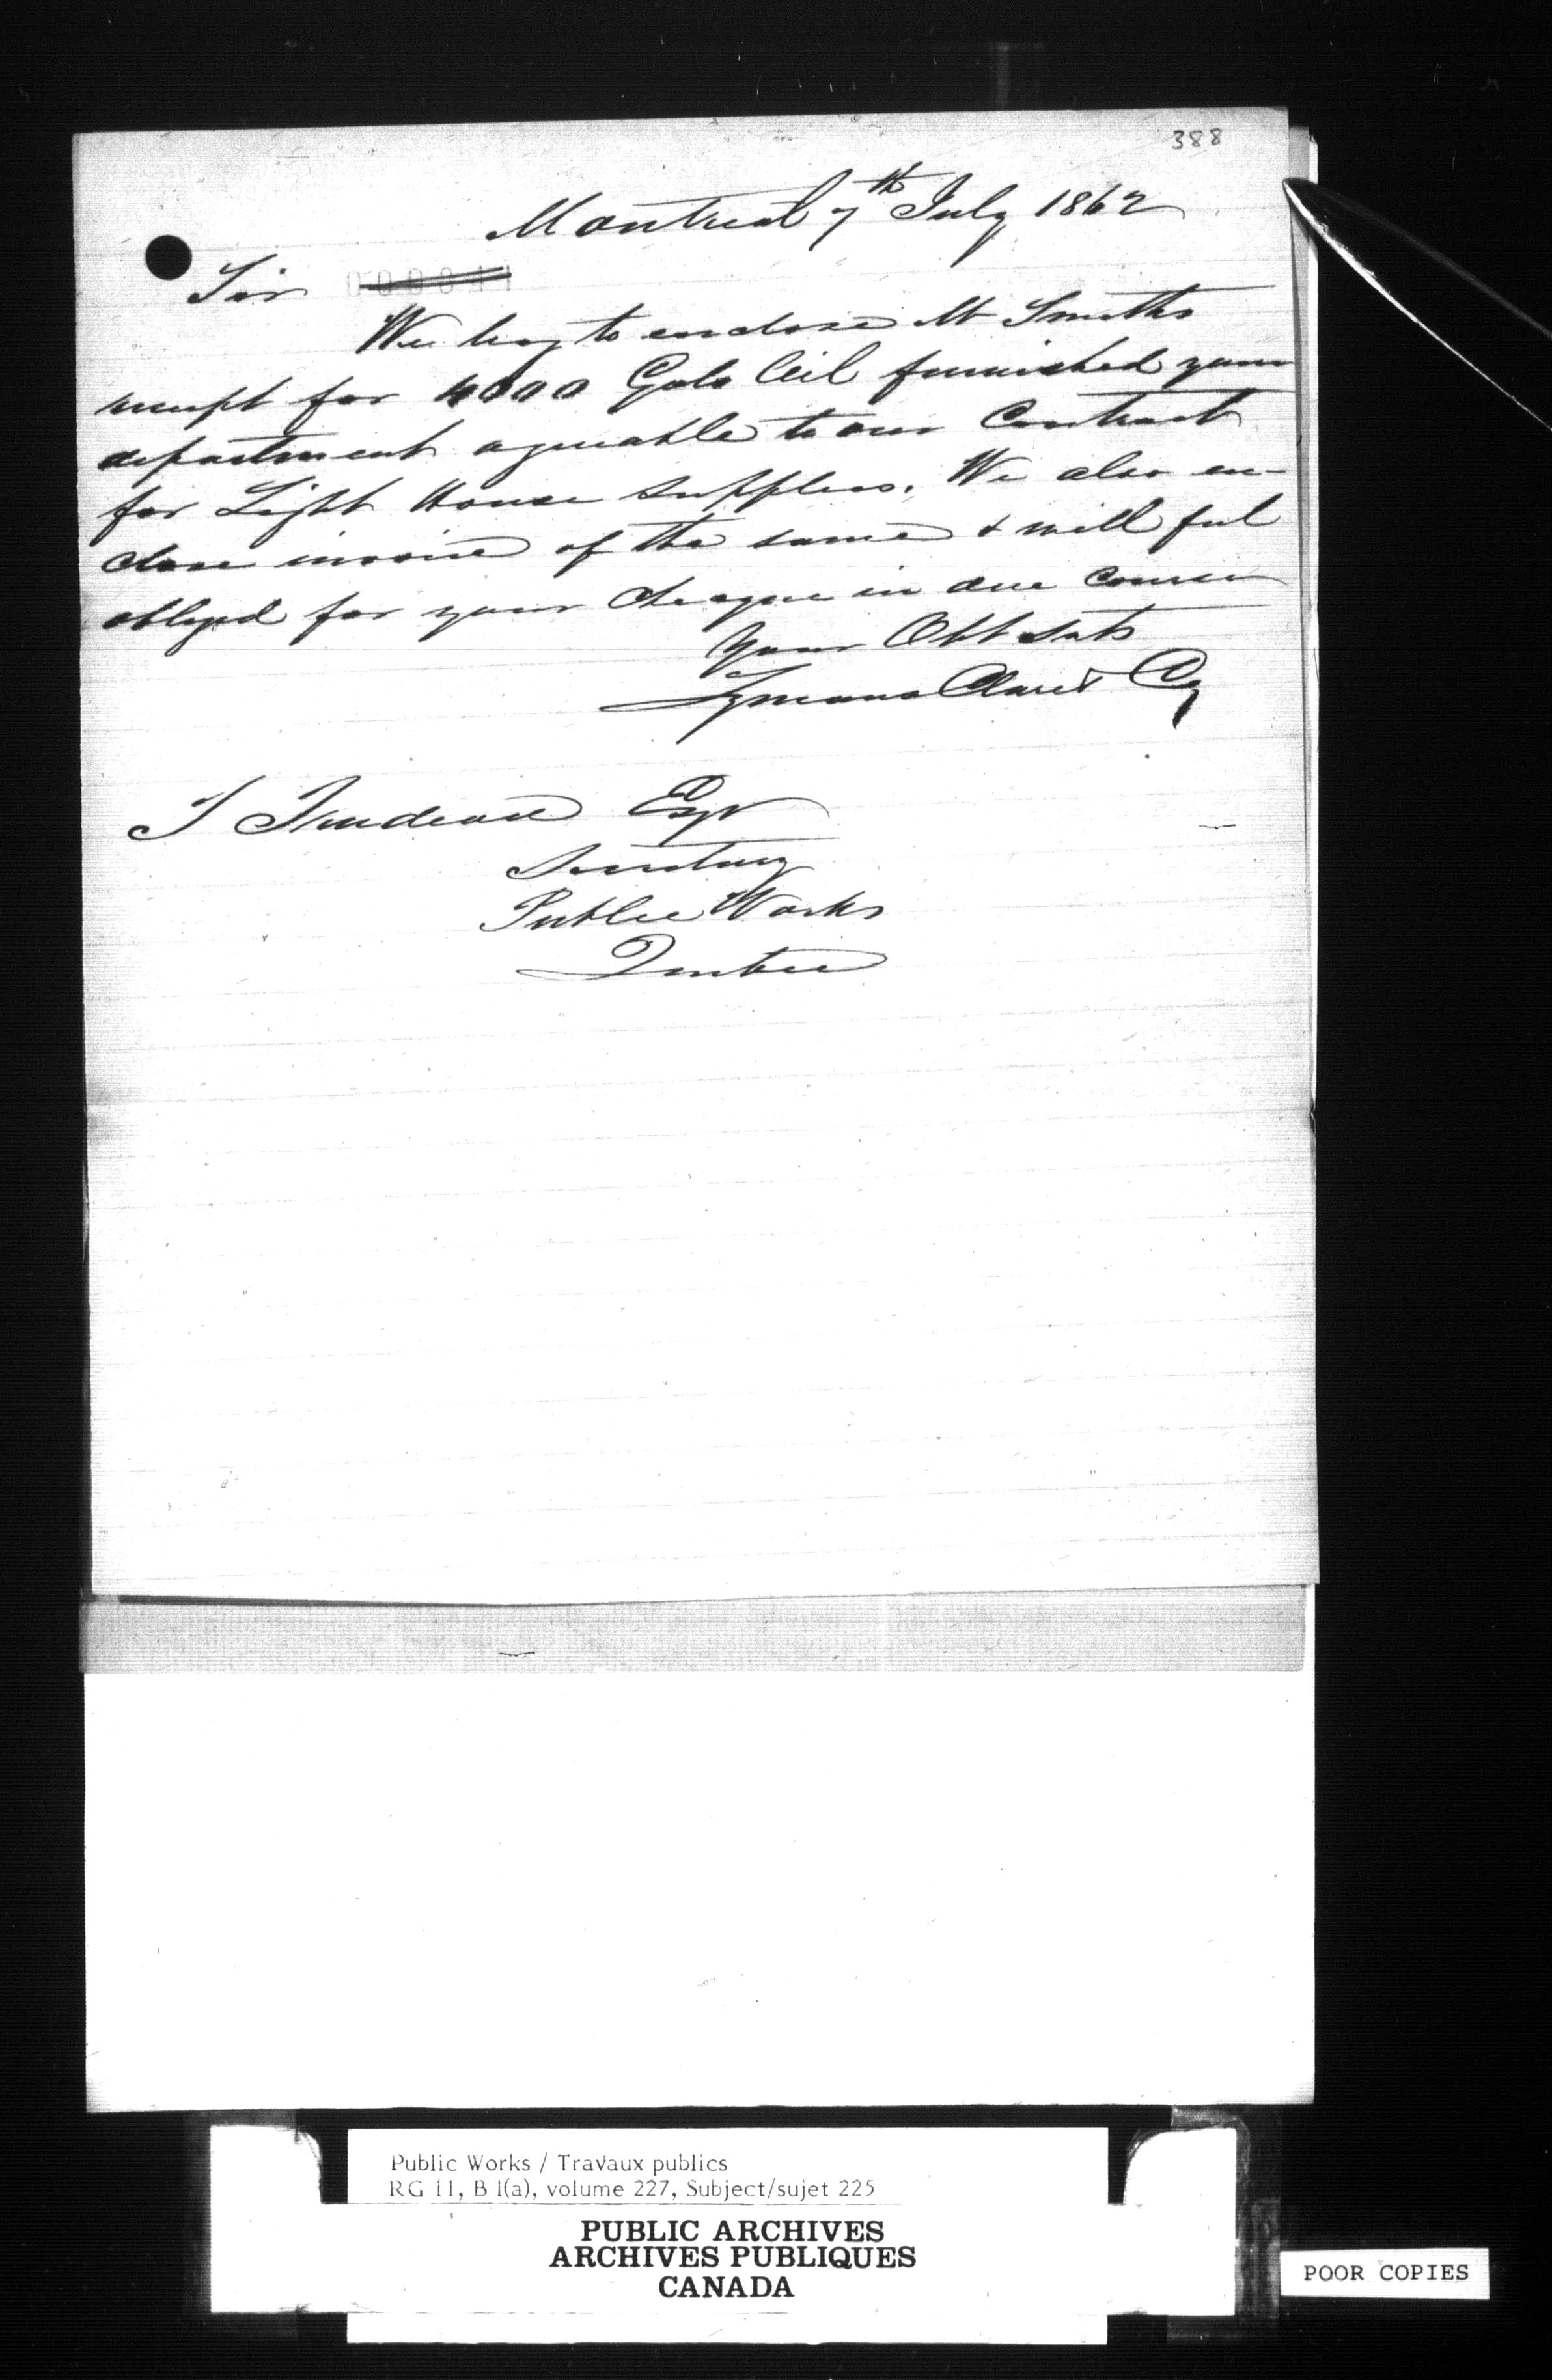 388
Montreal 7th July 1862
Sir
We beg to enclose Mr Smiths
receipt for 4000 Gals Oil furnished your
department agreeable to our Contract
for Light House Supplies. We also en-
close invoice of the same & will feel
obliged for your cheque in due course
Your Obt Svts
Lymans Clare & Co
T Trudeau Esqr
Secretary
Public Works
Quebec
Public Works / Travaux publics
RG 11, B 1(a), volume 227, Subject/sujet 225
PUBLIC ARCHIVES
ARCHIVES PUBLIQUES
CANADA
POOR COPIES